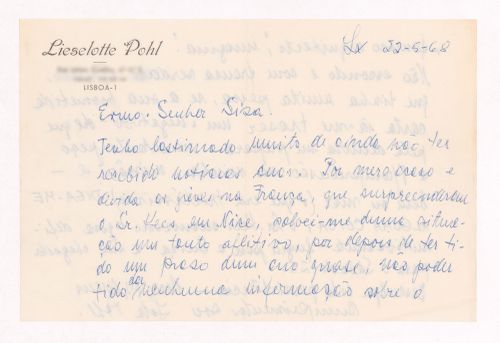 Lieselotte Pohl
LISBOA-1
Lx 22-5-68
Exmo. Senhor Siza.
Tenho lastimado muito de ainda não ter
recebido notícias suas. Por mero acaso e
devido as greves na França, que surpreenderam
o Sr. em Nice, salvei-me duma situa-
ção um tanto aflitiva, por depois de ter ti-
do um prazo dum ano quase, não poder
ter dado nenhuma informação sobre o